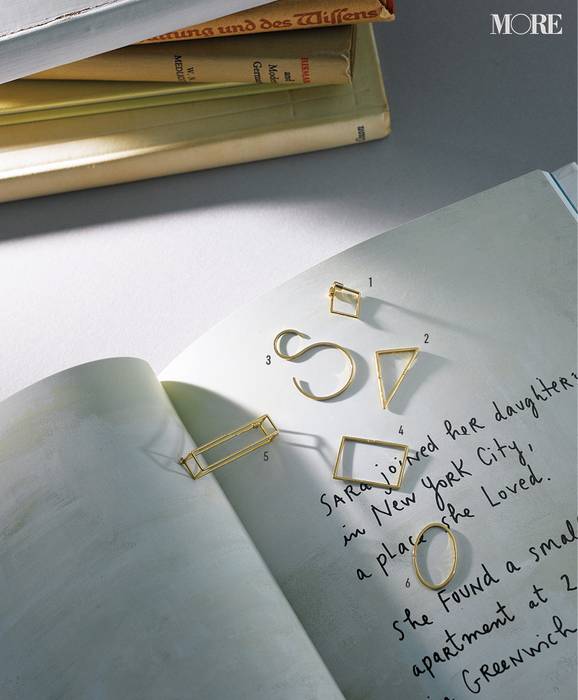 MORE
nung und des Wissens
W. S
MEDIZI
und
Mode
German
1
2
3
4
5
6
SARA joined her daughter:
in New York City,
a place she Loved.
She FOUND a small
apartment at 2
GREENWICH